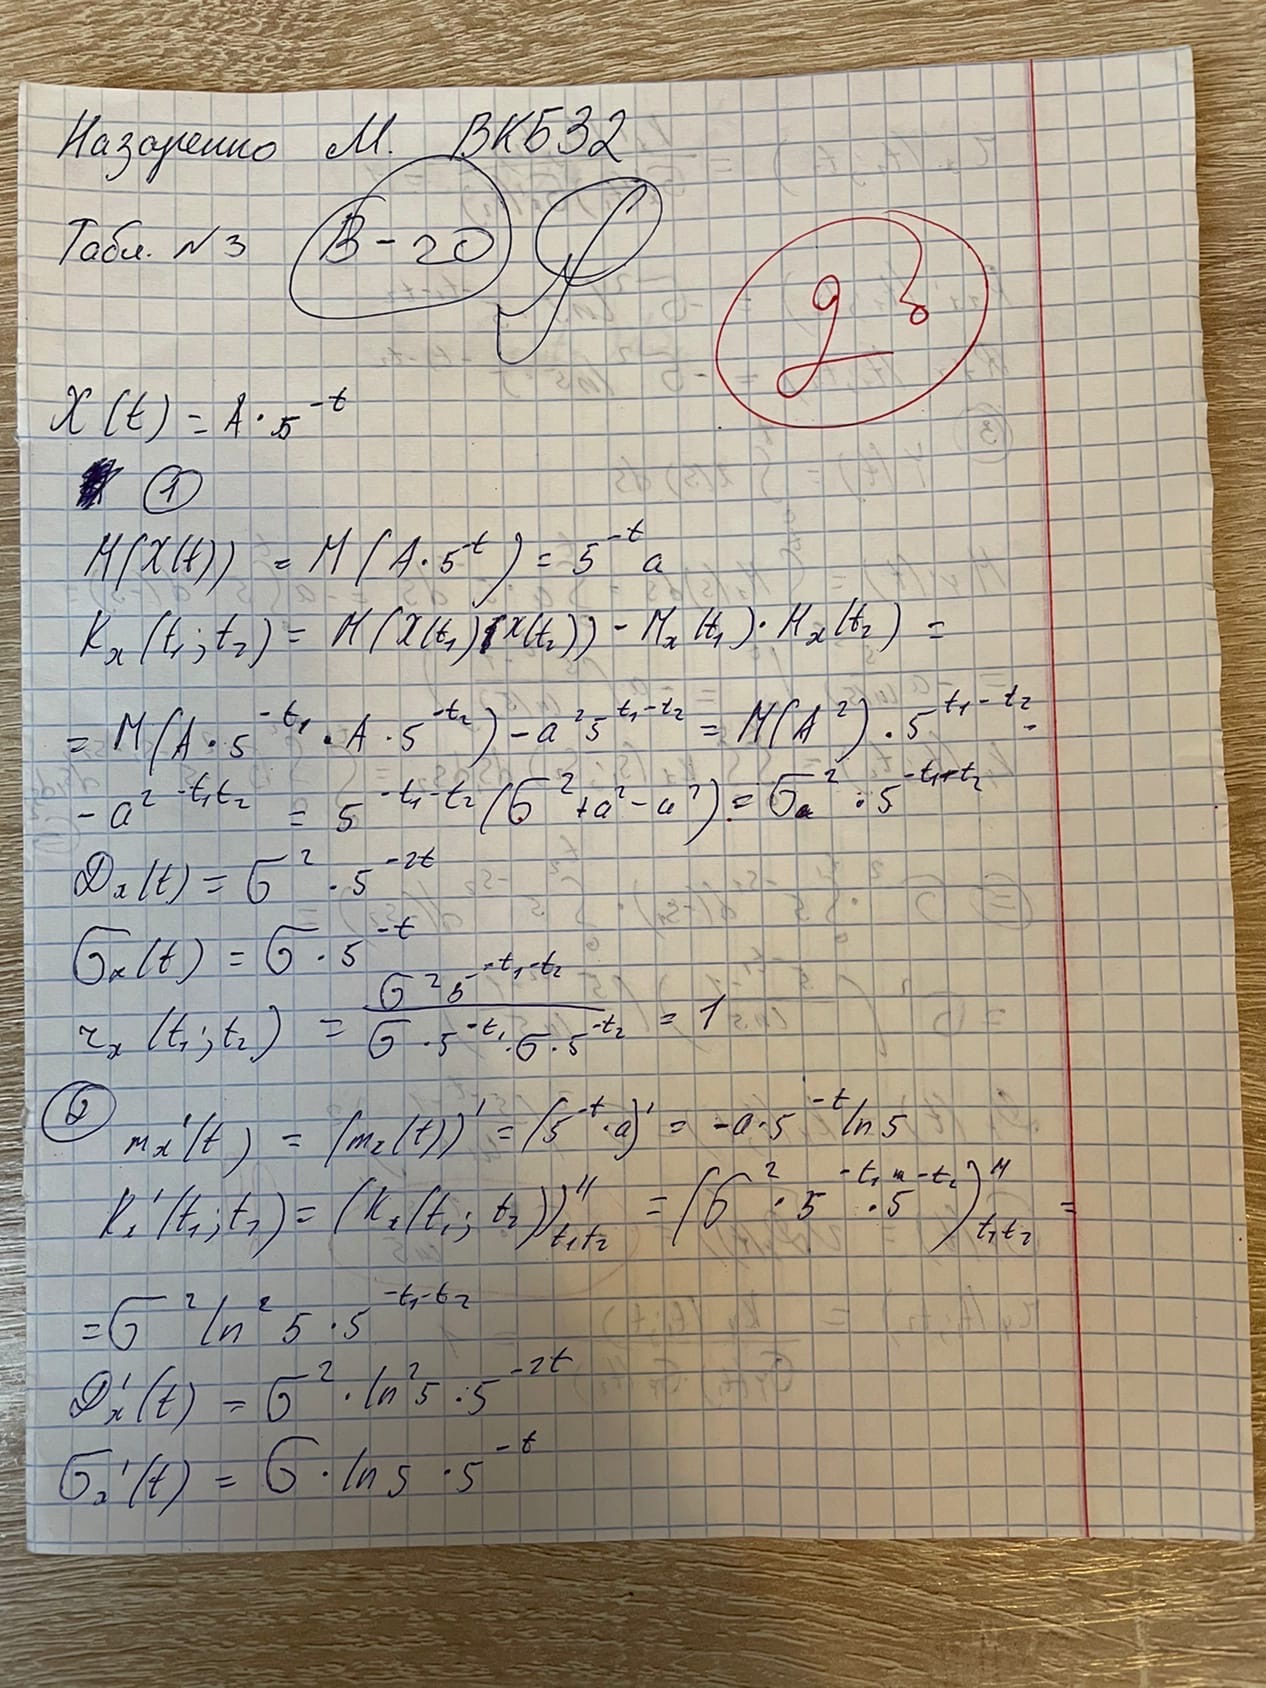 Назаренко М. ВКБ32
Табл. №3 В-20
9 б
X(t) = A·5^{-t}
①
M(X(t)) = M(A·5^{-t}) = 5^{-t} a
K_x(t₁; t₂) = M(X(t₁)(X(t₂)) - M_x(t₁)·M_x(t₂) =
= M(A·5^{-t₁}·A·5^{-t₂}) - a² 5^{t₁-t₂} = M(A²)·5^{t₁-t₂} -
- a² ^{-t₁t₂} = 5^{-t₁-t₂}(σ²+a²-a²) = σ_a²·5^{-t₁-t₂}
D_x(t) = σ²·5^{-2t}
σ_x(t) = σ·5^{-t}
r_x(t₁; t₂) = \frac{σ² 5^{-t₁-t₂}}{σ·5^{-t₁}·σ·5^{-t₂}} = 1
②
m_x'(t) = (m_x(t))' = (5^{-t}·a)' = -a·5^{-t} ln 5
K_x'(t₁; t₂) = (K_x(t₁; t₂))''_{t₁t₂} = (σ²·5^{-t₁}·5^{-t₂})''_{t₁t₂} =
= σ² ln² 5·5^{-t₁-t₂}
D_x'(t) = σ²·ln² 5·5^{-2t}
σ_x'(t) = σ·ln 5·5^{-t}